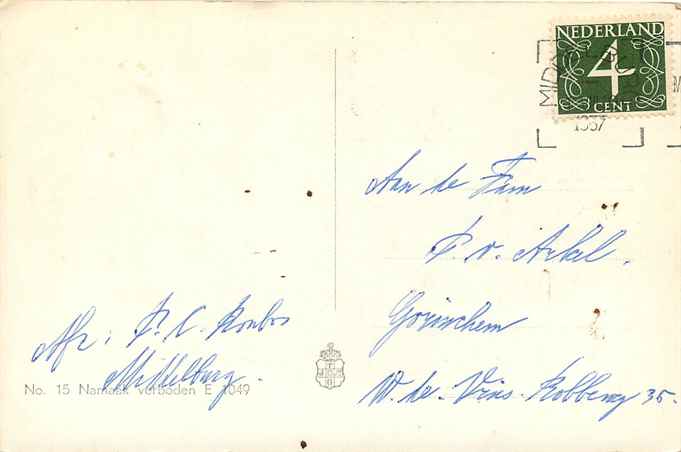 NEDERLAND
4
CENT
MID
1957
Aan de Fam
P. v. Arkel.
Gorinchem
W. de. Vries. Robbeweg 35.
Afz: P. C.
Middelburg.
No. 15 Namaak verboden E 1049